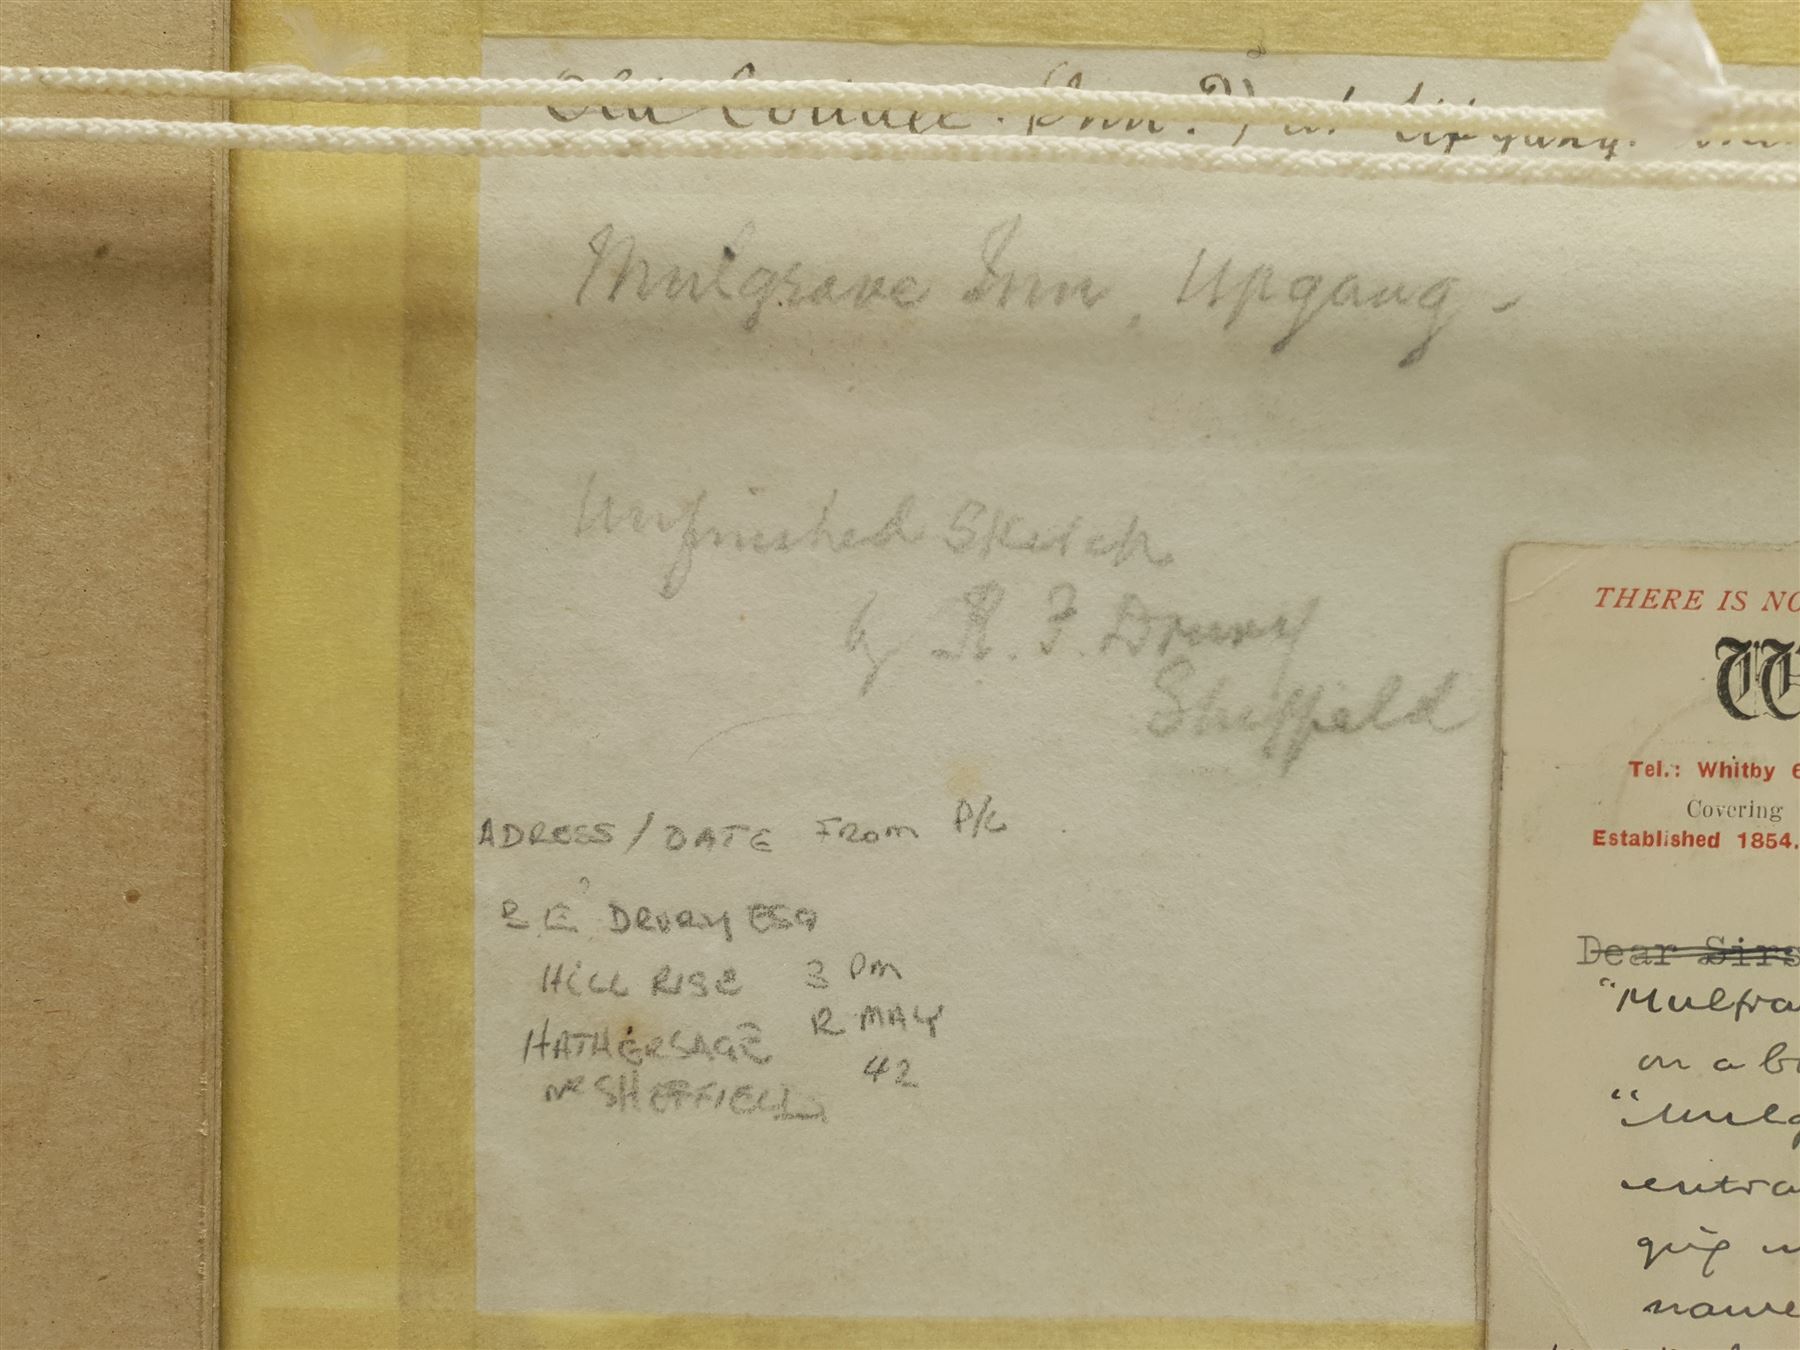 Old Inn. at Upgang.
Mulgrave Inn, Upgang -
Unfinished Sketch
by R. F. Drury
Sheffield
ADRESS / DATE FROM P/C
?
R E DRURY ESQ
HILL RISE 3 PM
HATHERSAGE 12 MAY
NR SHEFFIELD 42
THERE IS NO
W
Tel.: Whitby 6
Covering
Established 1854.
Dear Sirs
"Mulgra
on a
"Mulg
entra
name